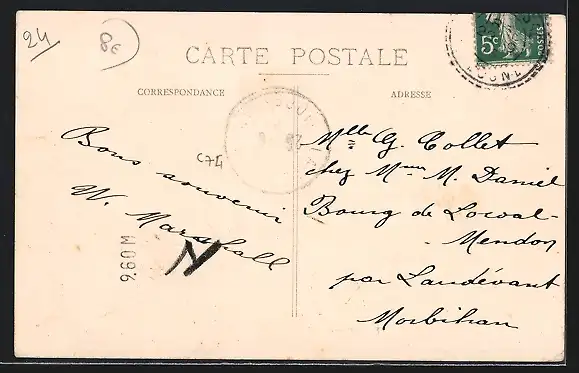 24
8€
CARTE POSTALE
CORRESPONDANCE
ADRESSE
5c
POSTES
C74
Bons souvenir
W. Marshall
9.60 M
N
Mlle G. Collet
chez Mme M. Daniel
Bourg de Locoal-
- Mendon
par Landévant
Morbihan